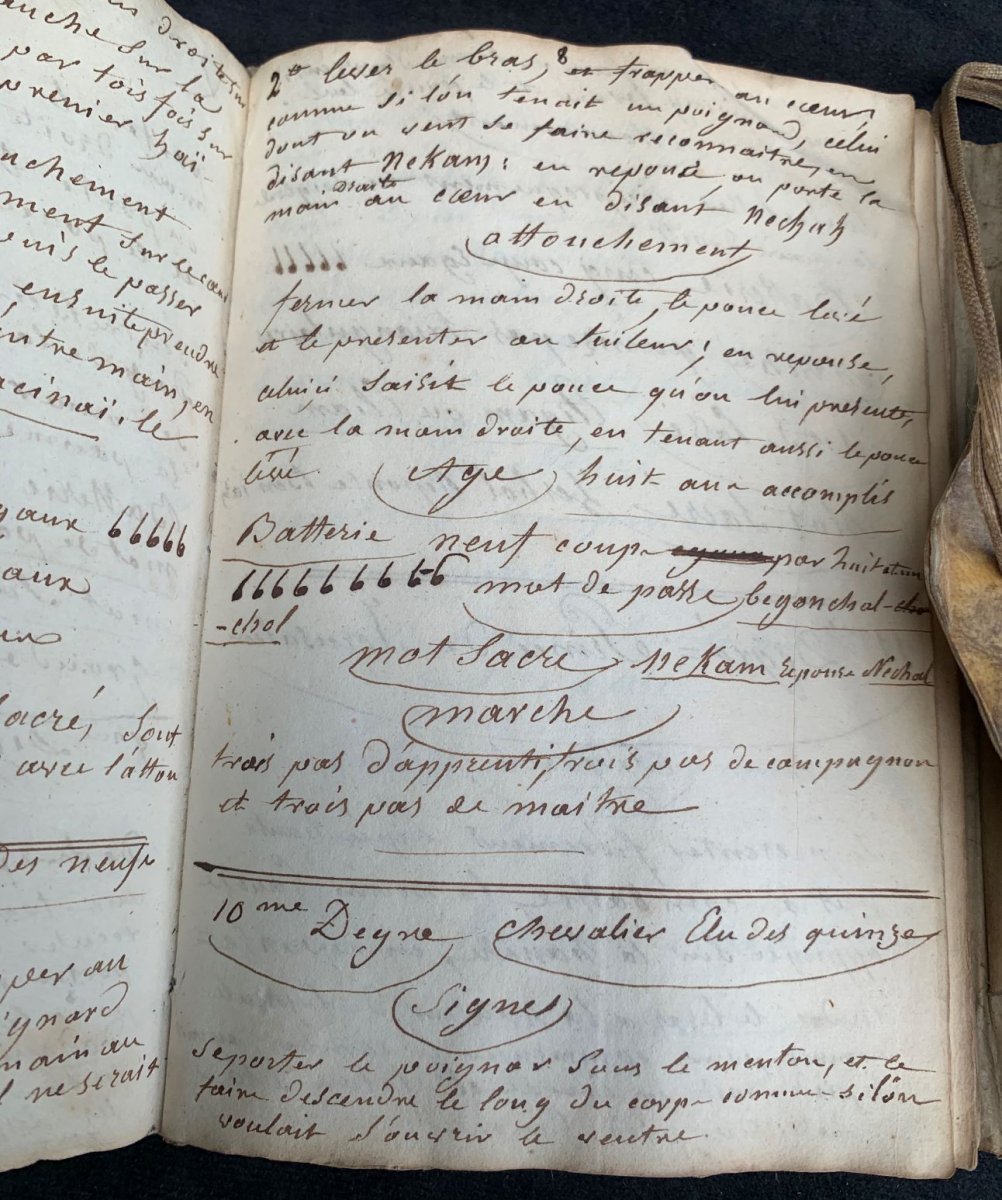 droites sur
auche sur la
par tois fois sur
prenier hai-
uchement
ment sur le cœur
uis le passer
ensuite prendre
utre main, en
acinaï, le
yaux 66666
aux
acré, sont
avec l'attou
des neufs
per au
ignard
main au
l ne serait
8
2º lever le bras, et frapper au cœur
comme si lón tenait un poignard, célui
dont on veut se faire reconnaitre, en
disant NeKam: en reponse, on porte la
main droite au cœur en disant Nechah
attouchement
fermer la main droite, le pouce levé
et le presenter au tuileur; en reponse,
célui ci saisit le pouce qu'on lui presente,
avec la main droite, en tenant aussi le pouce
levé. Age huit ans accomplis
Batterie neuf coups par huit et un
mot de passe begonchal-cho
-chol
mot Sacre NeKam reponse Nechal
marche
trois pas d'apprenti, trois pas de compagnon
et trois pas de maitre
10me Degre chevalier Elu des quinze
Signes
se porter le poignar sous le menton, et le
faire descendre le long du corps comme si lón
voulait s'ouvrir le ventre